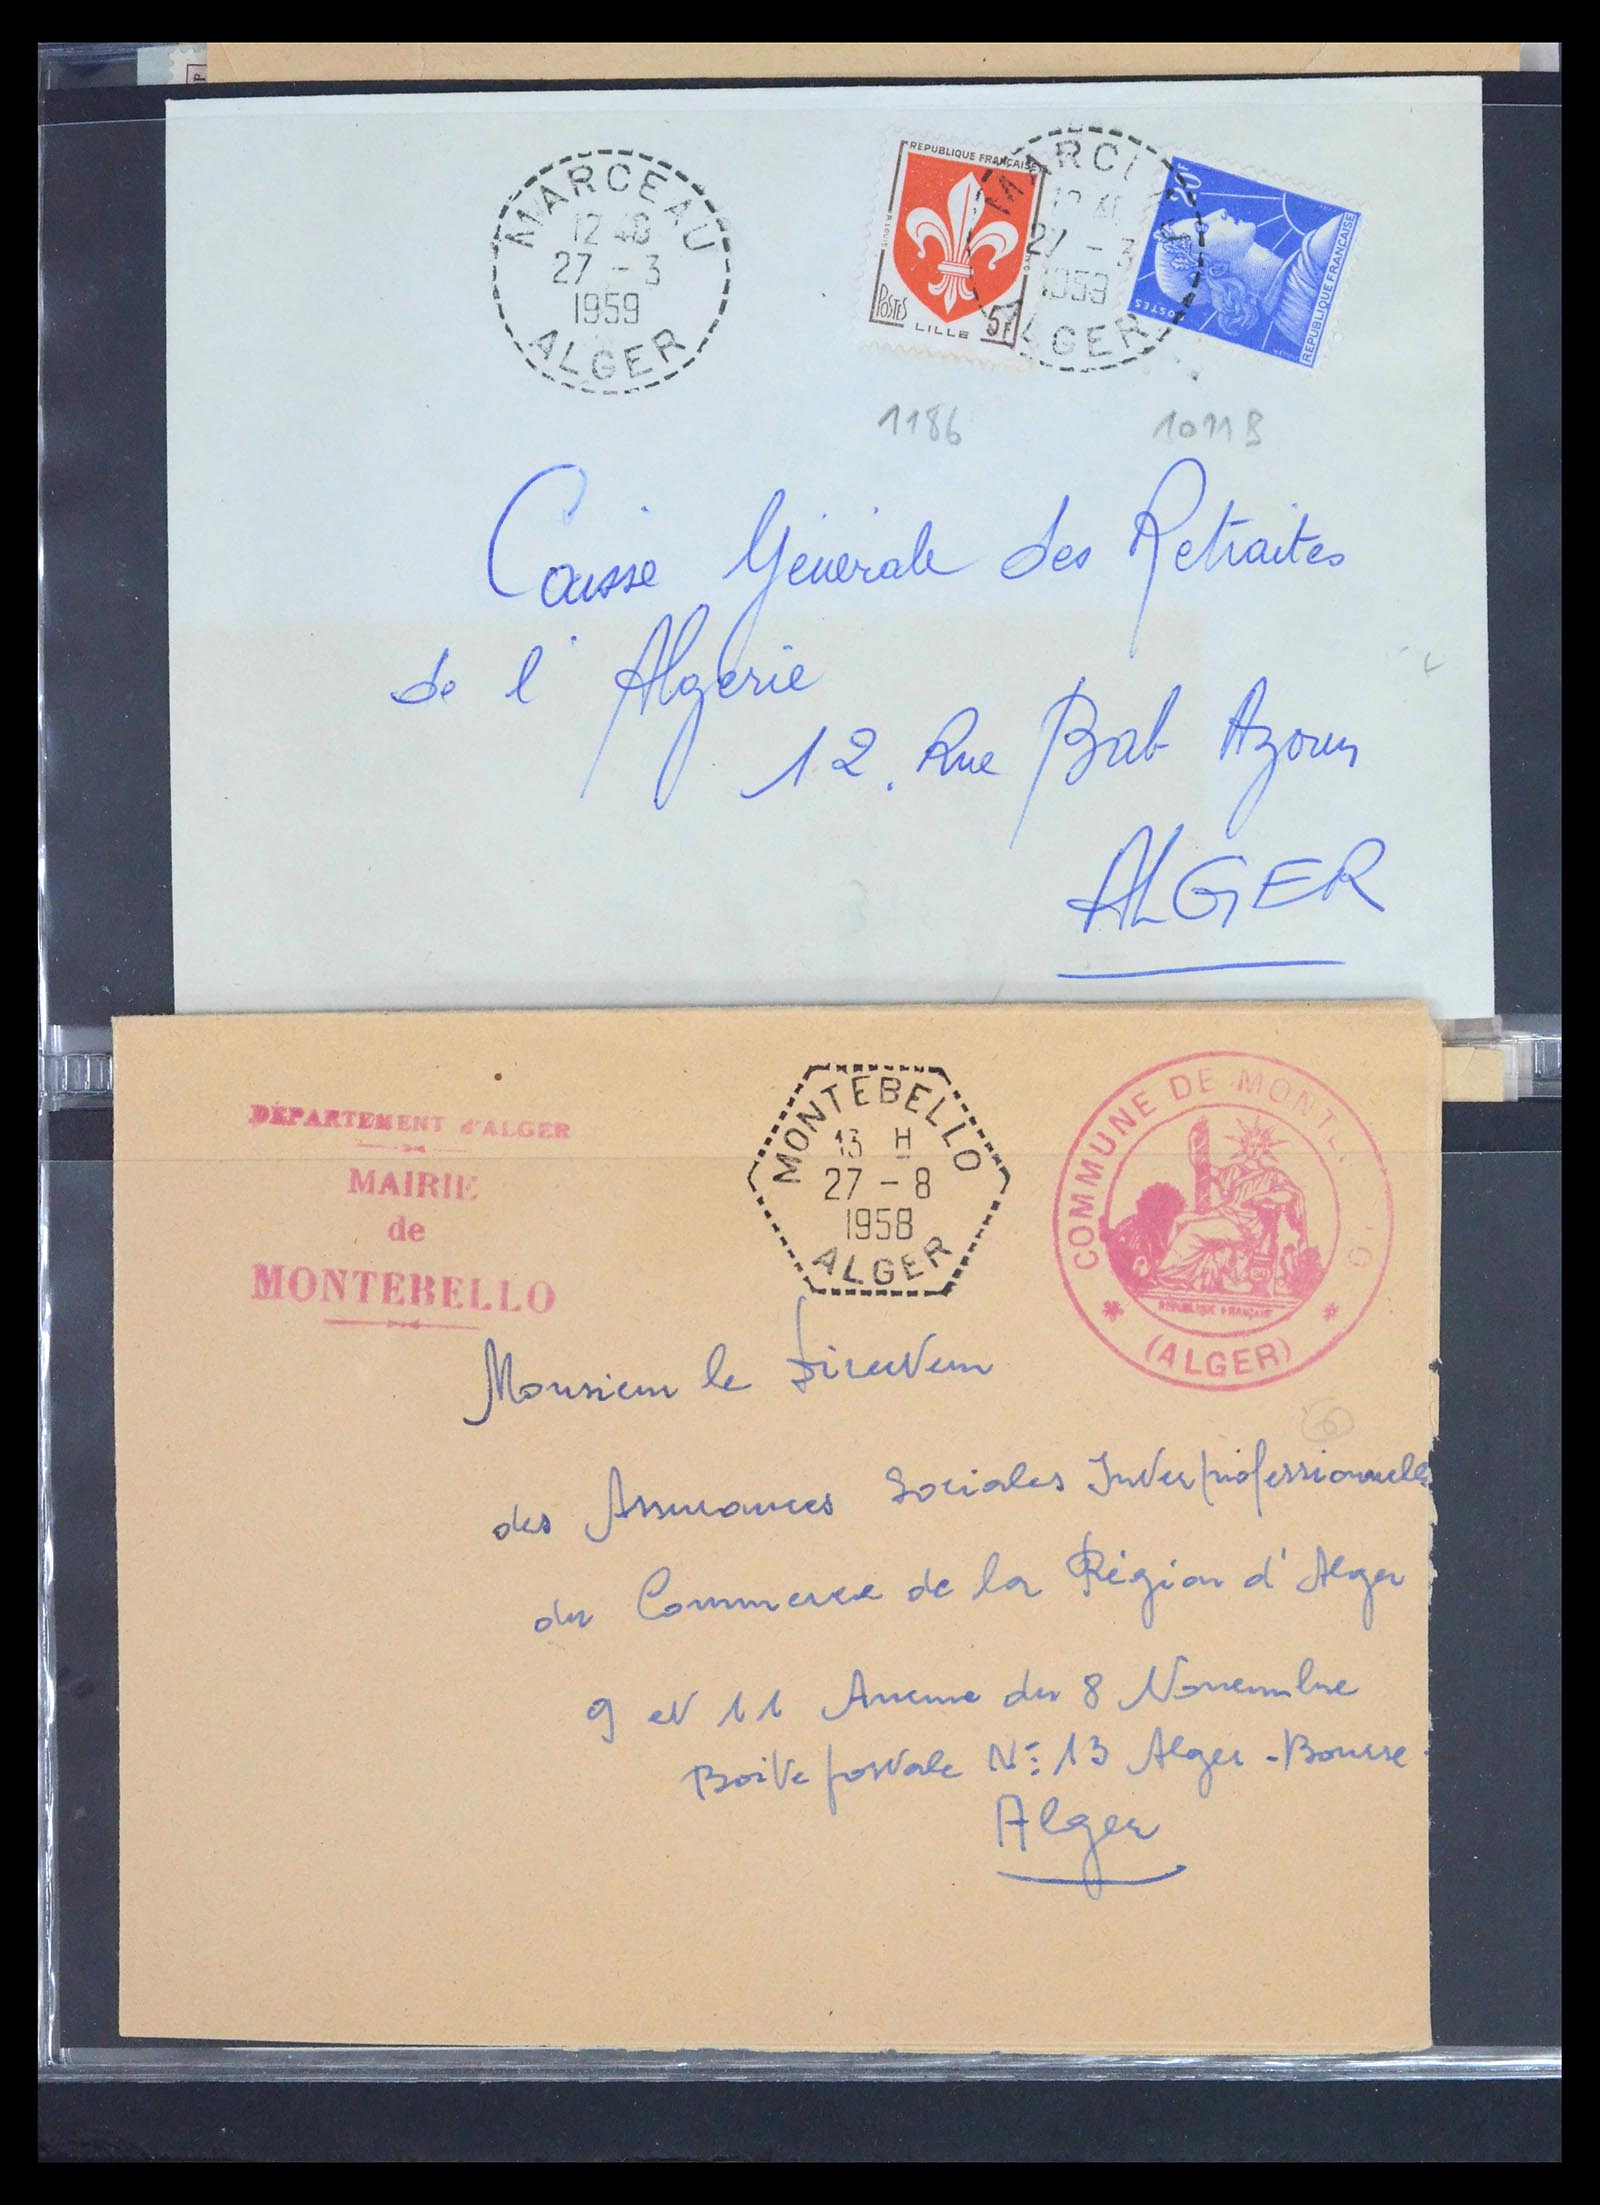 MARCEAU
12 40
27 - 3
1959
ALGER
REPUBLIQUE FRANÇAISE
POSTES
LILLE
5F
27 - 3
1959
ALGER
20F
POSTES
REPUBLIQUE FRANÇAISE
1186
1011B
Caisse Générale des Retraites
de l'Algérie
12. Rue Bab Azoun
ALGER
DÉPARTEMENT d'ALGER
MAIRIE
de
MONTEBELLO
MONTEBELLO
13 H
27 - 8
1958
ALGER
COMMUNE DE MONT
REPUBLIQUE FRANÇAISE
(ALGER)
Monsieur le Directeur
des Assurances Sociales Interprofessionnelles
du Commerce de la Région d'Alger
9 et 11 Avenue du 8 Novembre
Boite postale N° 13 Alger-Bourse
Alger